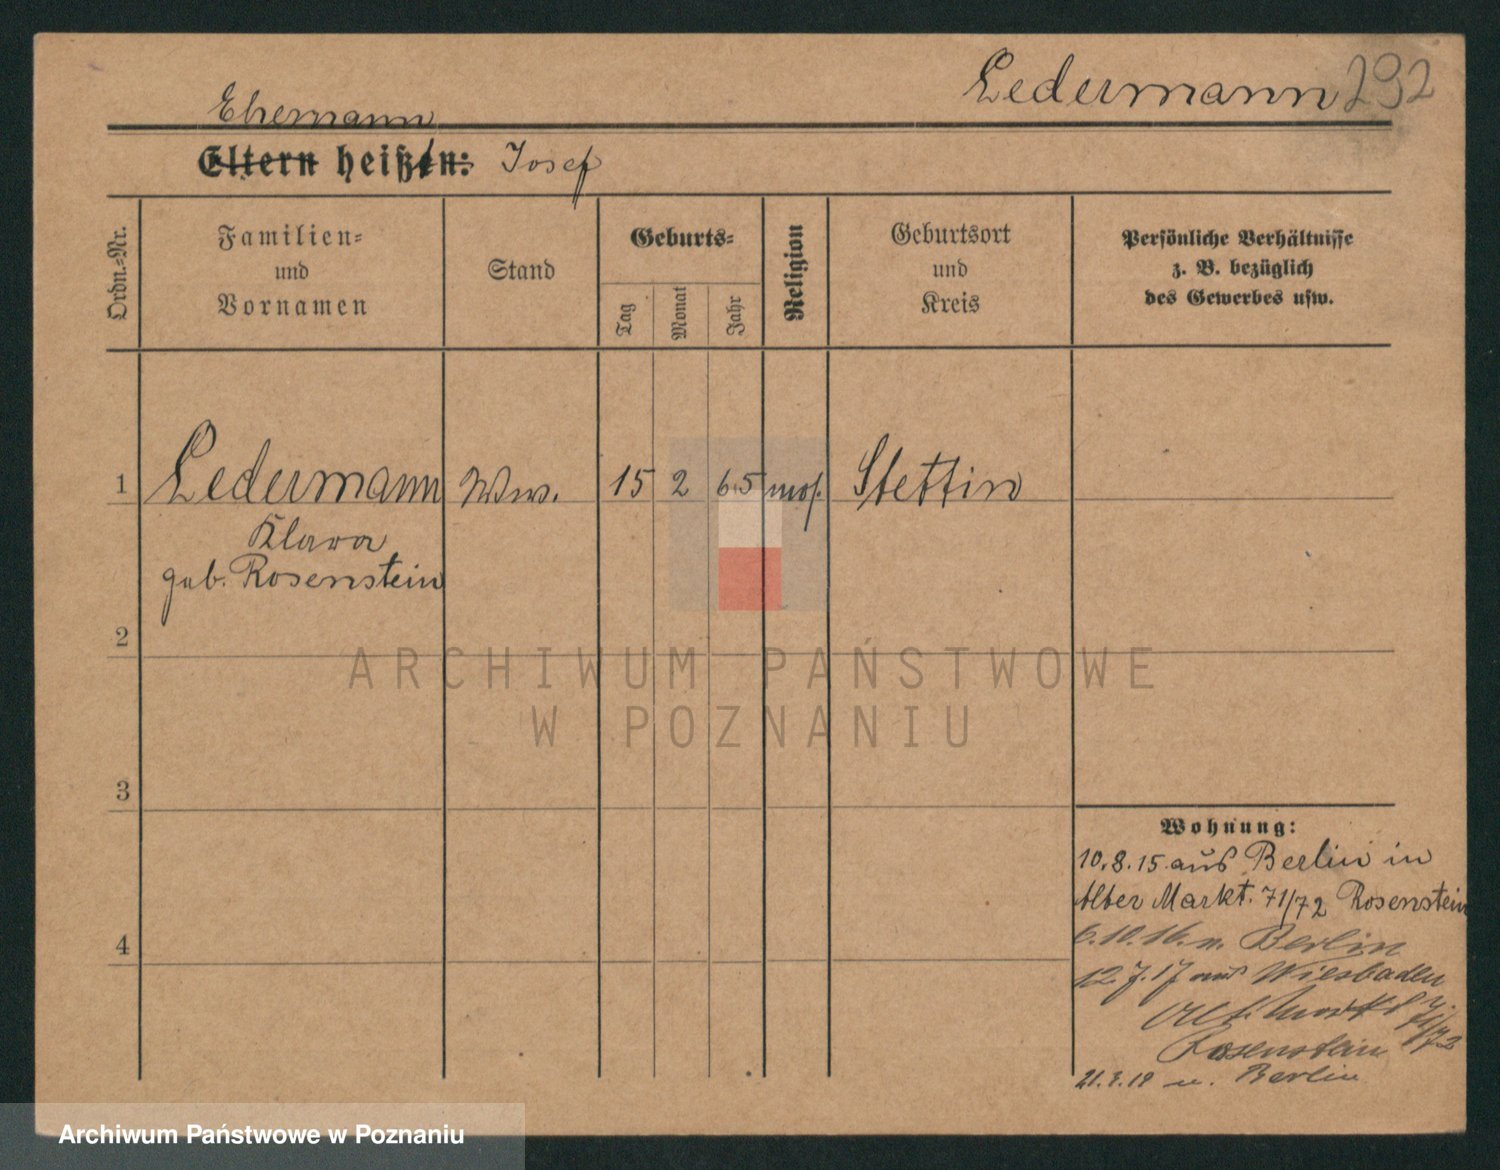 Ledermann 292
Ehemann
Eltern heißen: Josef
Ordn.-Nr.
Familien-
und
Vornamen
Stand
Geburts-
Tag
Monat
Jahr
Religion
Geburtsort
und
Kreis
Persönliche Verhältnisse
z. B. bezüglich
des Gewerbes usw.
1 Ledermann Ww. 15 2 65 mos. Stettin
Klara
geb. Rosenstein
2
ARCHIWUM PAŃSTWOWE
W POZNANIU
3
Wohnung:
10.8.15 aus Berlin in
Alter Markt. 71/72 Rosenstein
6.10.16. n. Berlin
4
12.7.17 aus Wiesbaden
Alt. Markt 71/72
Rosenstein
n. Berlin
Archiwum Państwowe w Poznaniu